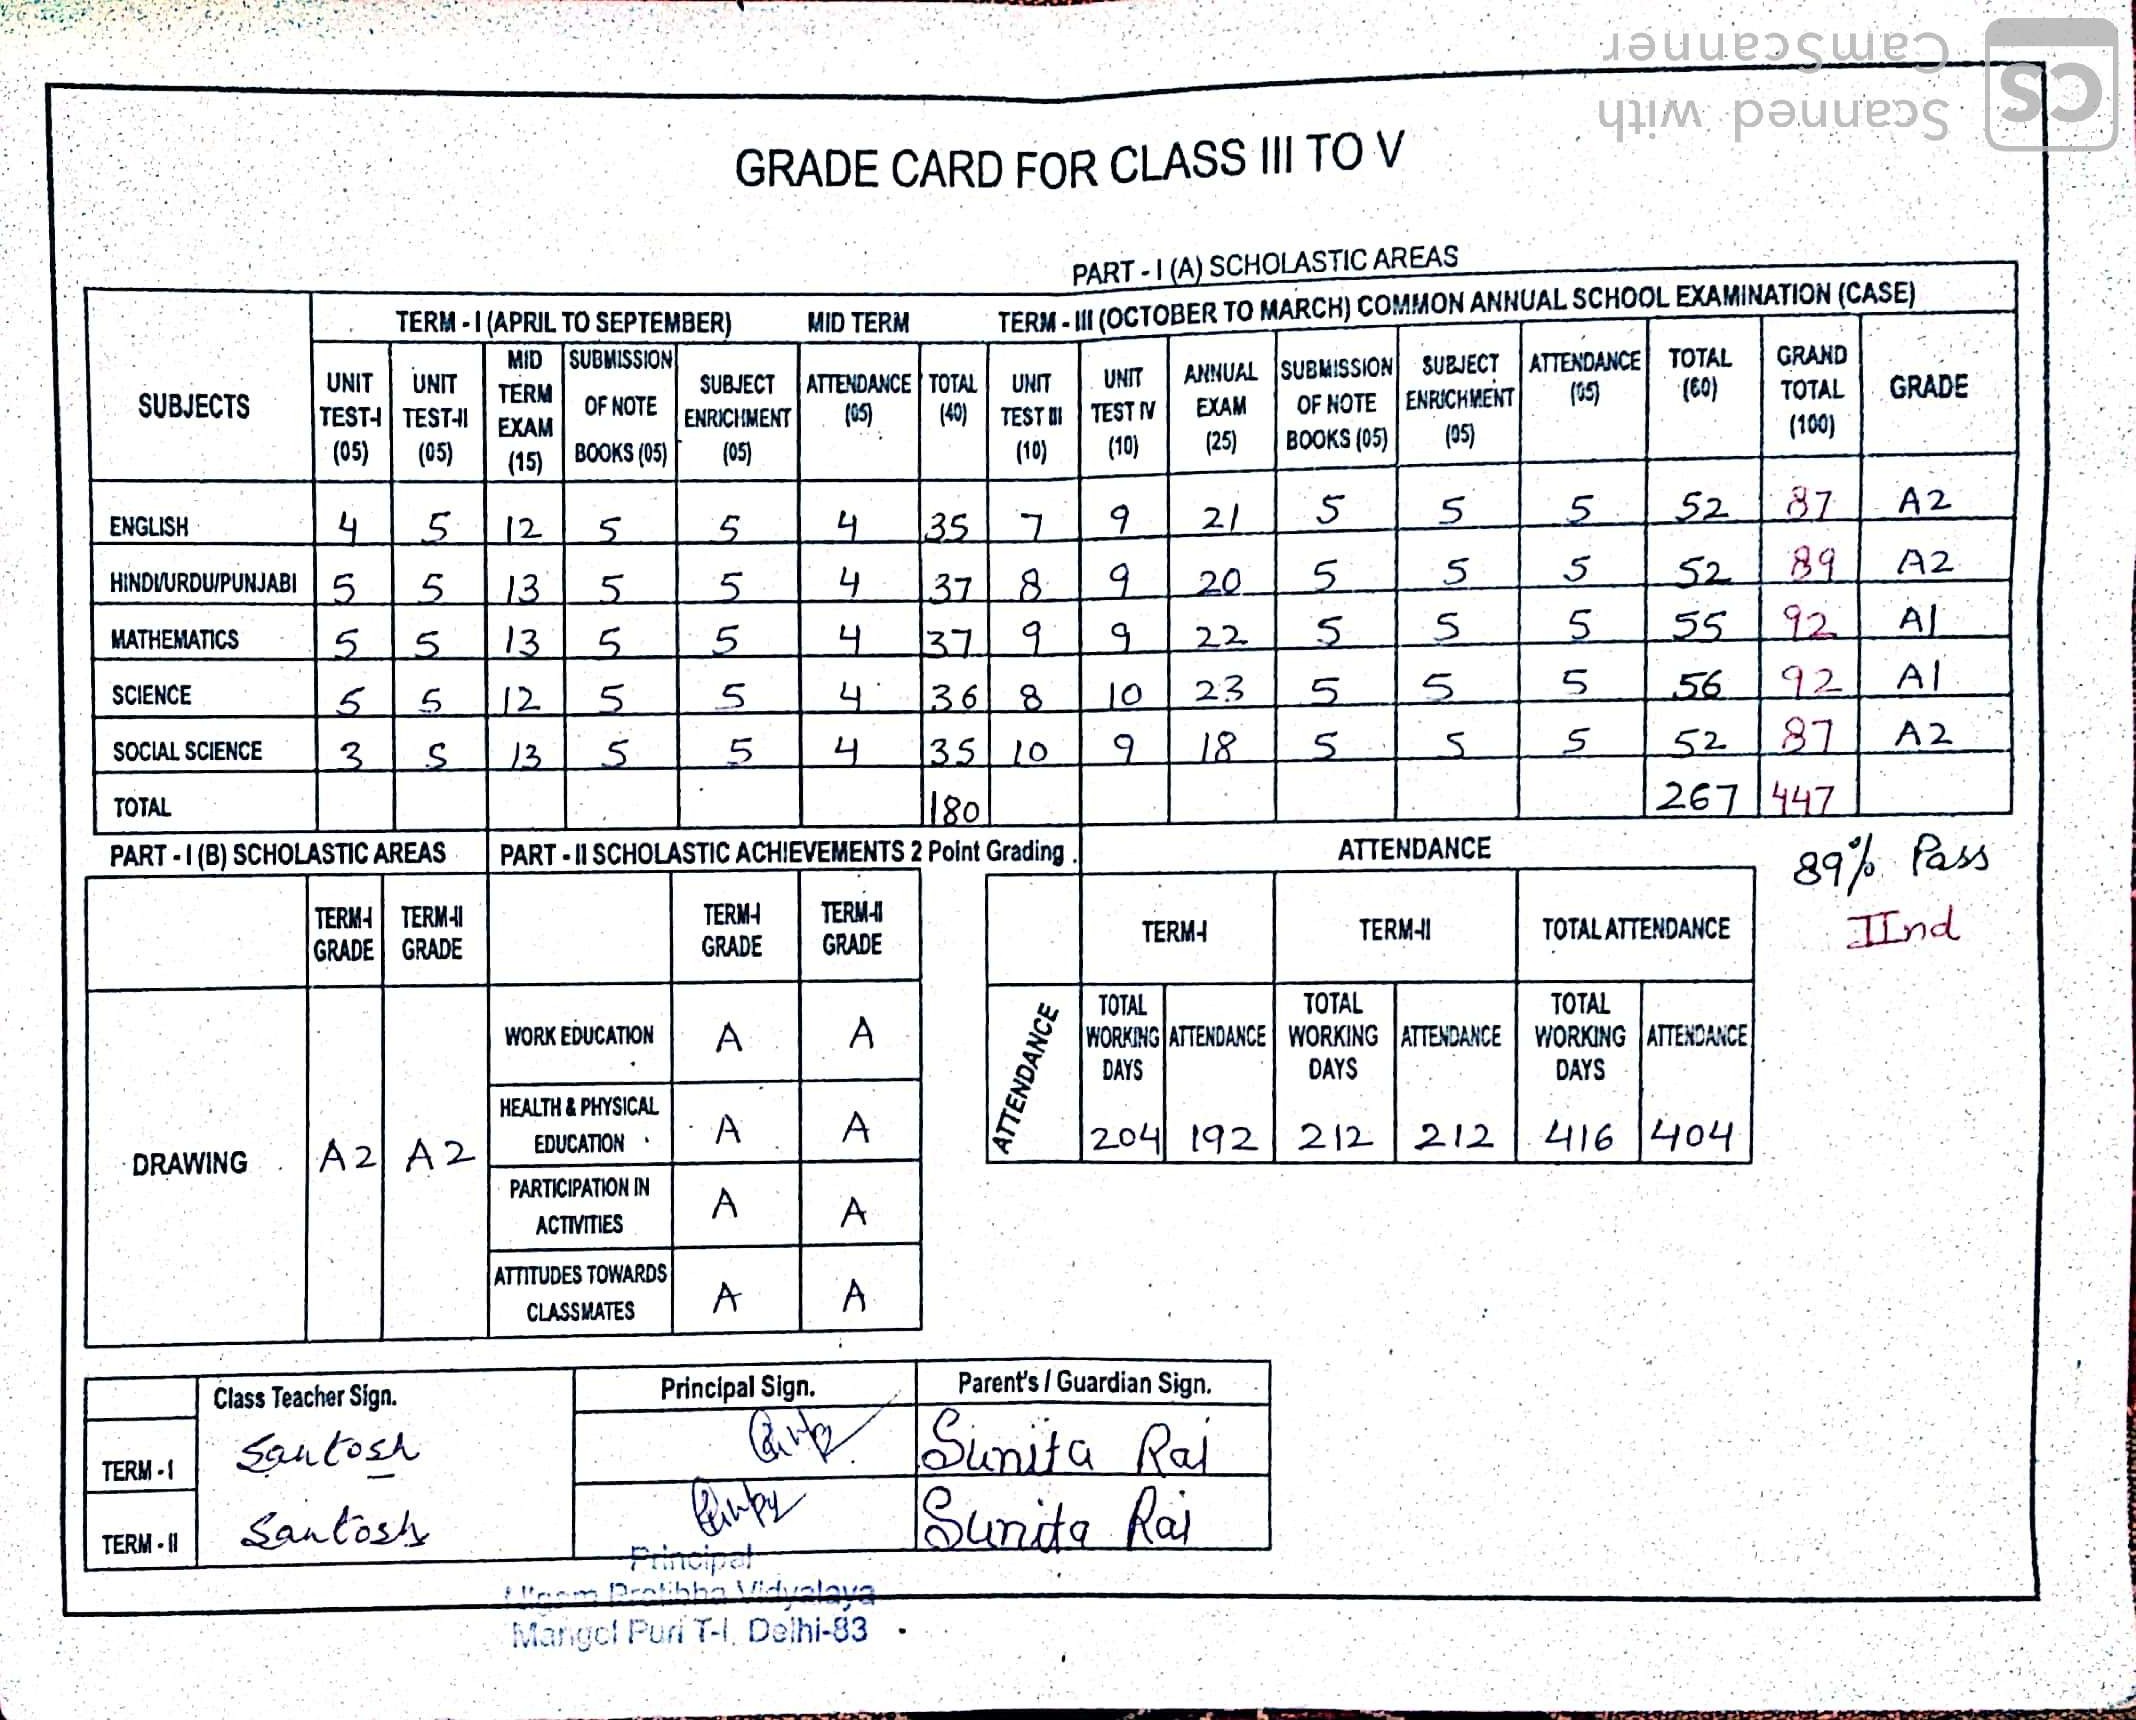 Scanned with
CamScanner
CS
GRADE CARD FOR CLASS III TO V
PART - I (A) SCHOLASTIC AREAS
SUBJECTS TERM - I (APRIL TO SEPTEMBER) MID TERM TERM - III (OCTOBER TO MARCH) COMMON ANNUAL SCHOOL EXAMINATION (CASE)
UNIT TEST-I (05) UNIT TEST-II (05) MID TERM EXAM (15) SUBMISSION OF NOTE BOOKS (05) SUBJECT ENRICHMENT (05) ATTENDANCE (05) TOTAL (40) UNIT TEST III (10) UNIT TEST IV (10) ANNUAL EXAM (25) SUBMISSION OF NOTE BOOKS (05) SUBJECT ENRICHMENT (05) ATTENDANCE (05) TOTAL (60) GRAND TOTAL (100) GRADE
ENGLISH 4 5 12 5 5 4 35 7 9 21 5 5 5 52 87 A2
HINDI/URDU/PUNJABI 5 5 13 5 5 4 37 8 9 20 5 5 5 52 89 A2
MATHEMATICS 5 5 13 5 5 4 37 9 9 22 5 5 5 55 92 A1
SCIENCE 5 5 12 5 5 4 36 8 10 23 5 5 5 56 92 A1
SOCIAL SCIENCE 3 5 13 5 5 4 35 10 9 18 5 5 5 52 87 A2
TOTAL 180 267 447
89% Pass
IInd
PART - I (B) SCHOLASTIC AREAS
TERM-I GRADE TERM-II GRADE
DRAWING A2 A2
PART - II SCHOLASTIC ACHIEVEMENTS 2 Point Grading .
TERM-I GRADE TERM-II GRADE
WORK EDUCATION A A
HEALTH & PHYSICAL EDUCATION A A
PARTICIPATION IN ACTIVITIES A A
ATTITUDES TOWARDS CLASSMATES A A
ATTENDANCE
TERM-I TERM-II TOTAL ATTENDANCE
ATTENDANCE
TOTAL WORKING DAYS ATTENDANCE TOTAL WORKING DAYS ATTENDANCE TOTAL WORKING DAYS ATTENDANCE
204 192 212 212 416 404
Class Teacher Sign. Principal Sign. Parent's / Guardian Sign.
TERM - I Santosh Sunita Rai
TERM - II Santosh Sunita Rai
Principal
Pratibha Vidyalaya
Mangol Puri T-I, Delhi-83